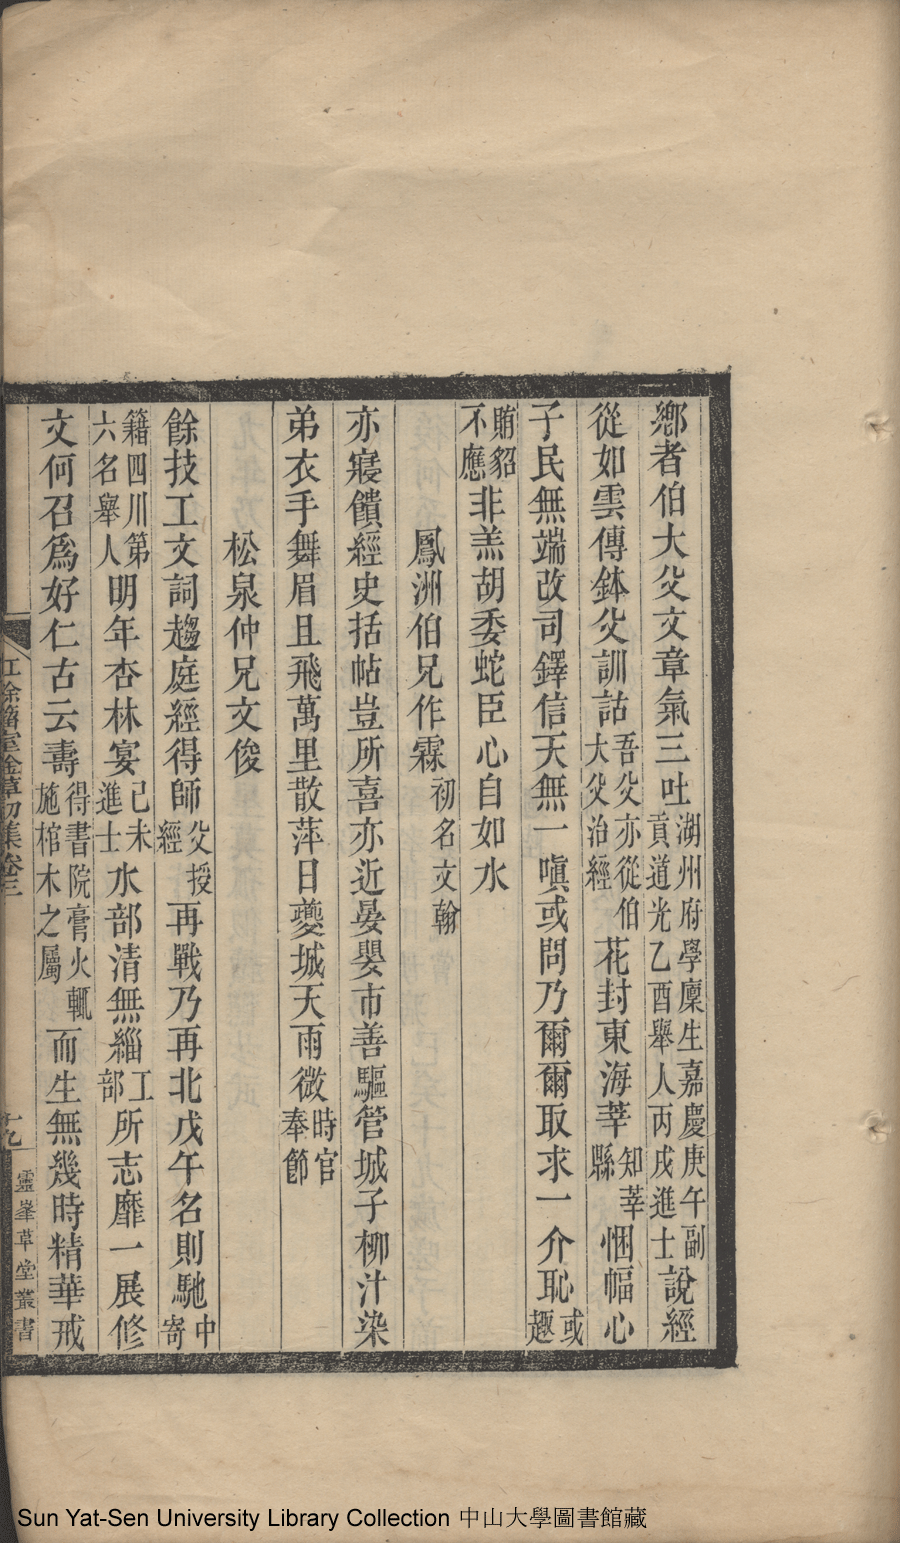 鄉者伯大父文章氣三吐湖州府學廩生嘉慶庚午副貢道光乙酉舉人丙戌進士說經
從如雲傳鉢父訓詁吾父亦從伯大父治經花封東海莘知莘縣悃愊心
子民無端改司鐸信天無一嗔或問乃爾爾取求一介恥或趣
賂貂不應非羔胡委蛇臣心自如水
鳳洲伯兄作霖初名文翰
亦寢饋經史括帖豈所喜亦近晏嬰市善驅管城子柳汁染
弟衣手舞眉且飛萬里散萍日夔城天雨微時官奉節
松泉仲兄文俊
餘技工文詞趨庭經得師父授經再戰乃再北戊午名則馳中寄
籍四川第六名舉人明年杏林宴己未進士水部清無緇工部所志靡一展修
文何召為好仁古云壽得書院膏火輒施棺木之屬而生無幾時精華戒
餘籀室金草初集卷三
十九
靈峯草堂叢書
Sun Yat-Sen University Library Collection 中山大學圖書館藏